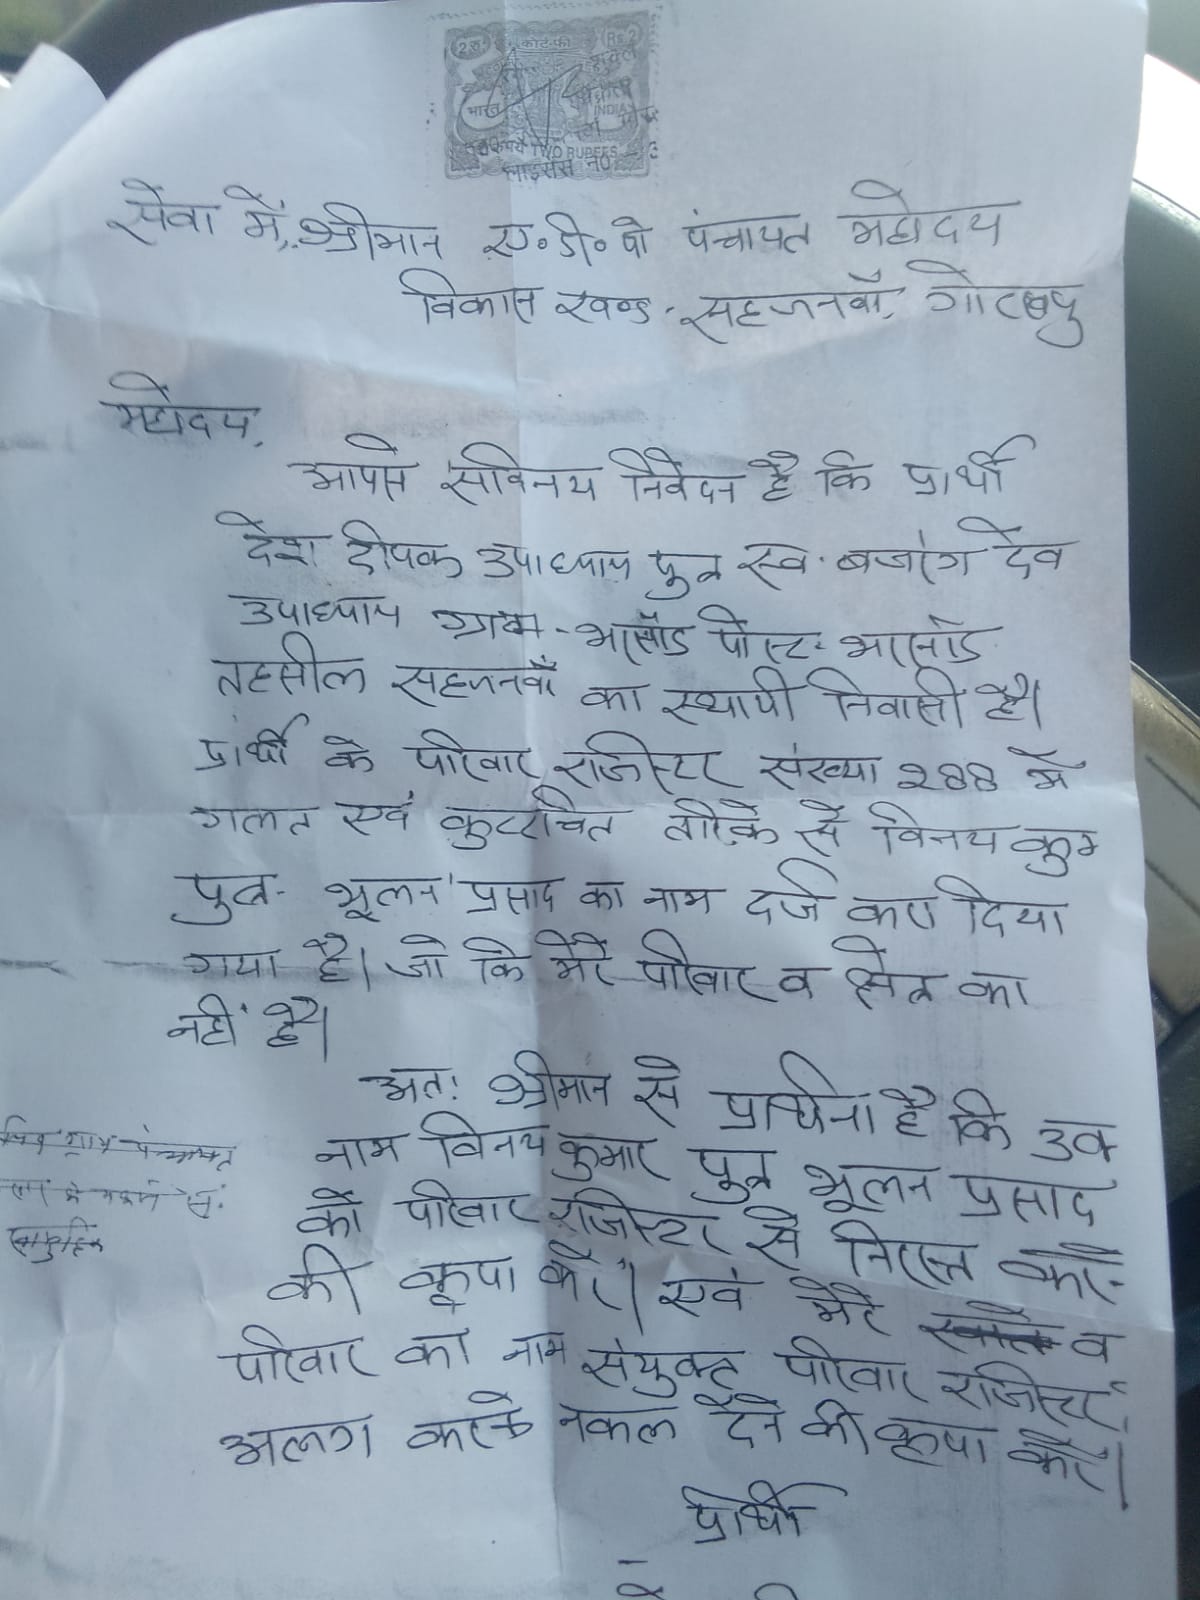 2 रु. कोर्ट-फी Rs 2
भारत INDIA
TWO RUPEES
सेवा में, श्रीमान ए॰ डी॰ ओ पंचायत महोदय
विकास खण्ड - सहजनवाँ, गोरखपु
महोदय,
आपसे सविनय निवेदन है कि प्रार्थी
देश दीपक उपाध्याय पुत्र स्व. बजरंग देव
उपाध्याय ग्राम - भरसाँड पोस्ट - भरसाँड
तहसील सहजनवाँ का स्थायी निवासी है।
प्रार्थी के परिवार रजिस्टर संख्या 288 में
गलत एवं कुटरचित तरिके से विनय कुम
पुत्र - भूलन प्रसाद का नाम दर्ज करा दिया
गया है। जो कि मेरे परिवार व क्षेत्र का
नहीं है।
अत: श्रीमान से प्रार्थना है कि उक्
नाम विनय कुमार पुत्र भूलन प्रसाद
को परिवार रजिस्टर से निरस्त करने
की कृपा करें। एवं मेरे व
परिवार का नाम संयुक्त परिवार रजिस्टर
अलग करके नकल देने की कृपा करें।
प्रार्थी